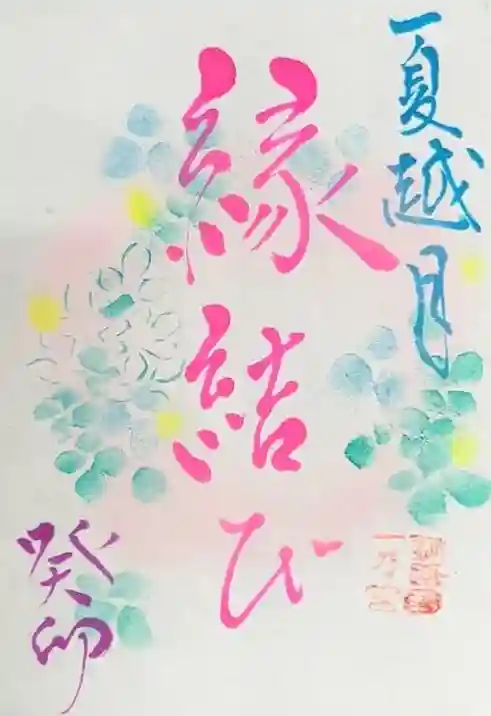 夏越月
縁結び
癸卯